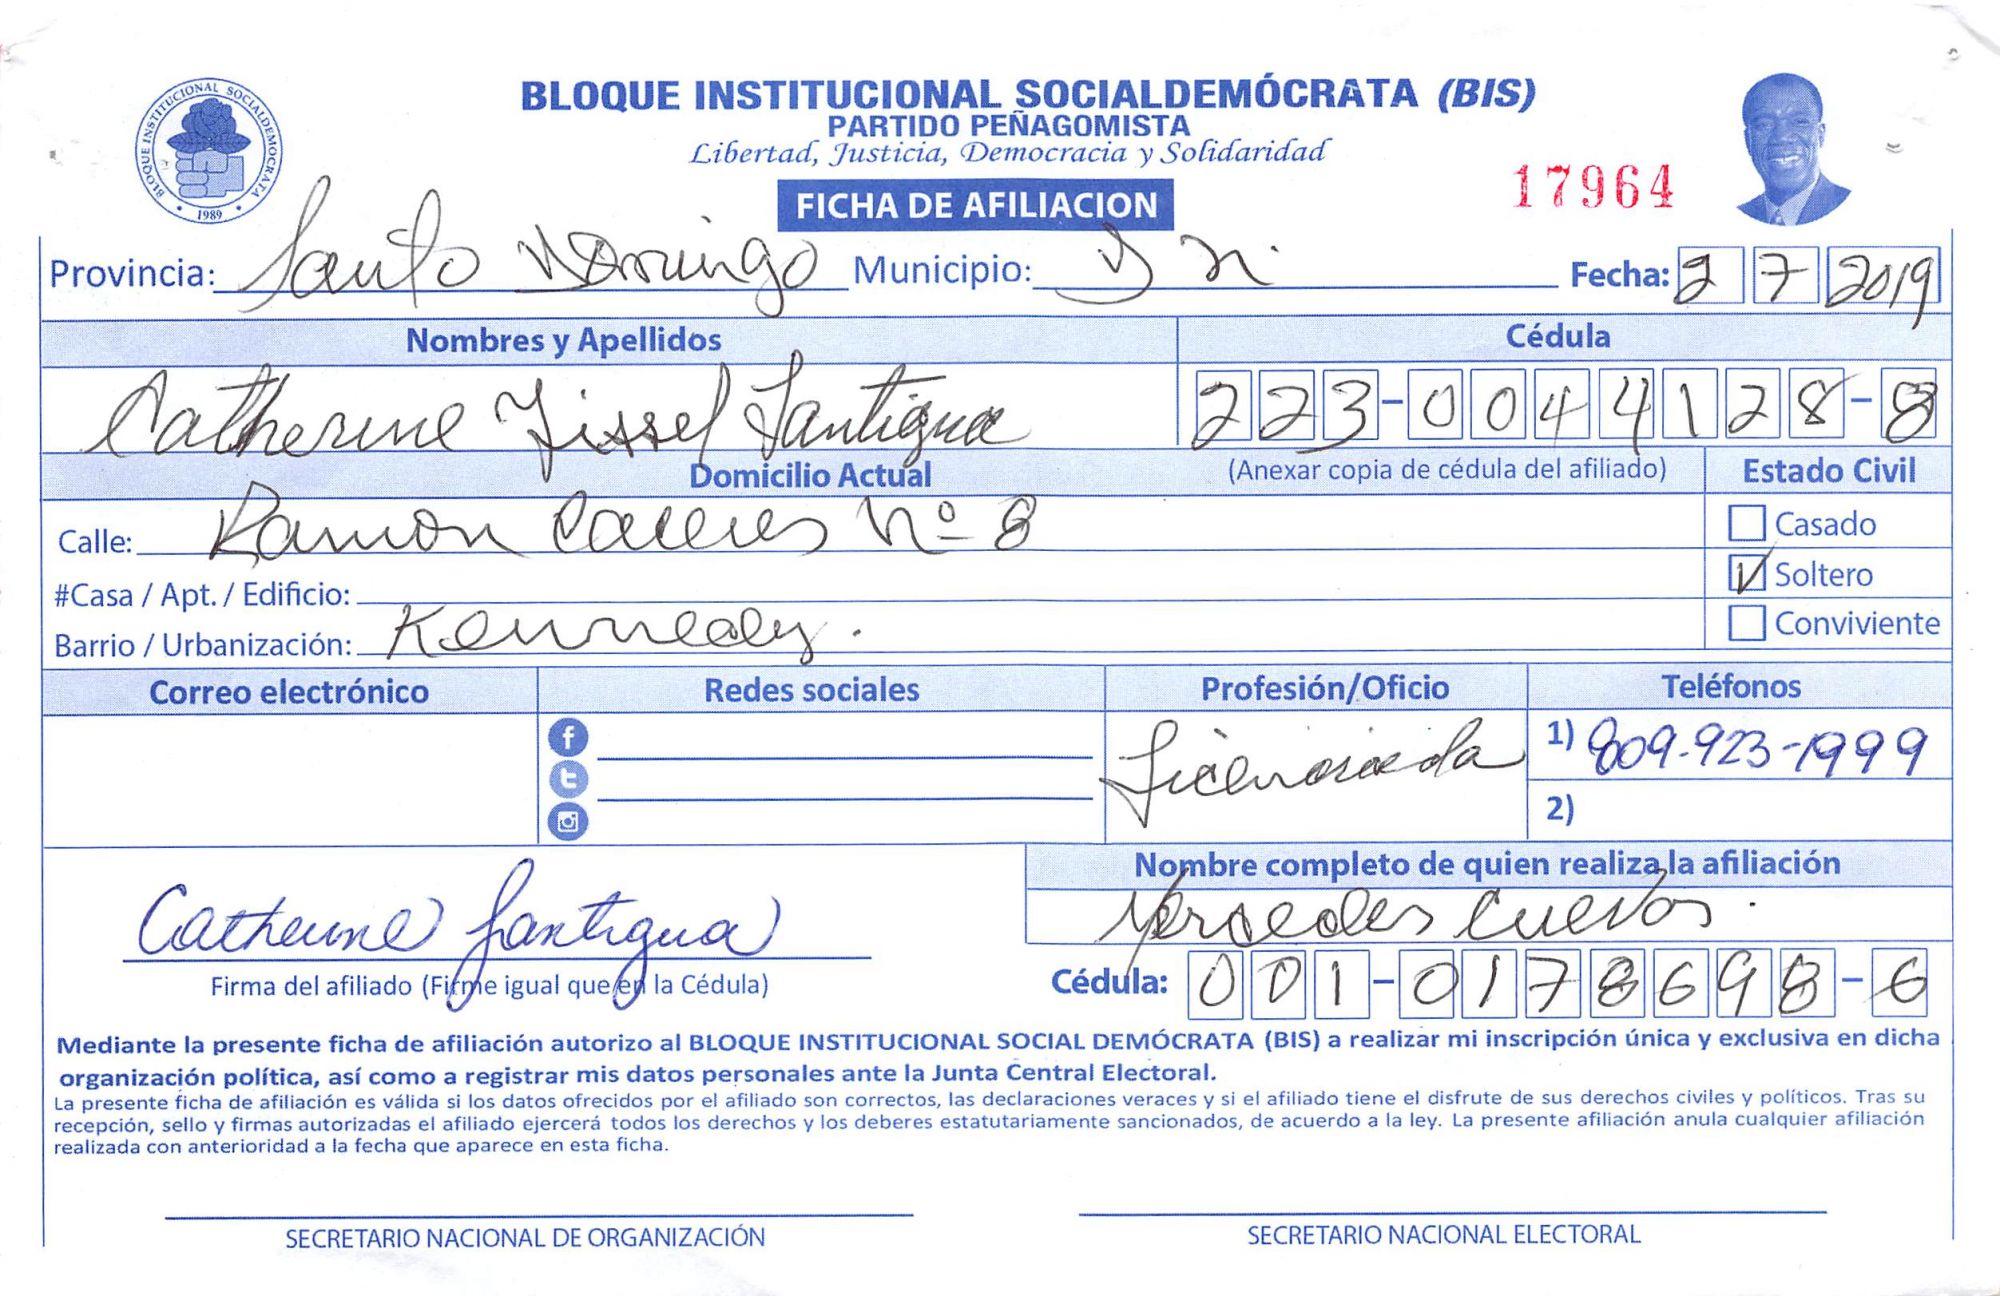 BLOQUE INSTITUCIONAL SOCIALDEMÓCRATA (BIS)
PARTIDO PEÑAGOMISTA
Libertad, Justicia, Democracia y Solidaridad
BLOQUE INSTITUCIONAL SOCIALDEMOCRATA
1989
17964
FICHA DE AFILIACION
Provincia: Santo Domingo Municipio: D N. Fecha: 2 7 2019
Nombres y Apellidos Cédula
Catherine Yissel Santigua 223-0044128-8
Domicilio Actual (Anexar copia de cédula del afiliado) Estado Civil
Calle: Ramon Caceres Nº 8 Casado
#Casa / Apt. / Edificio: Soltero
Barrio / Urbanización: Kennedy. Conviviente
Correo electrónico Redes sociales Profesión/Oficio Teléfonos
Licenciada 1) 809-923-1999
2)
Nombre completo de quien realiza la afiliación
Catherine Santigua Mersedes Cuevas.
Firma del afiliado (Firme igual que en la Cédula) Cédula: 001-0178698-6
Mediante la presente ficha de afiliación autorizo al BLOQUE INSTITUCIONAL SOCIAL DEMÓCRATA (BIS) a realizar mi inscripción única y exclusiva en dicha
organización política, así como a registrar mis datos personales ante la Junta Central Electoral.
La presente ficha de afiliación es válida si los datos ofrecidos por el afiliado son correctos, las declaraciones veraces y si el afiliado tiene el disfrute de sus derechos civiles y políticos. Tras su
recepción, sello y firmas autorizadas el afiliado ejercerá todos los derechos y los deberes estatutariamente sancionados, de acuerdo a la ley. La presente afiliación anula cualquier afiliación
realizada con anterioridad a la fecha que aparece en esta ficha.
SECRETARIO NACIONAL DE ORGANIZACIÓN SECRETARIO NACIONAL ELECTORAL